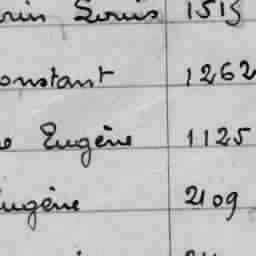 Louis 1515
onstant 1262
Eugène 1125
ugène 2109